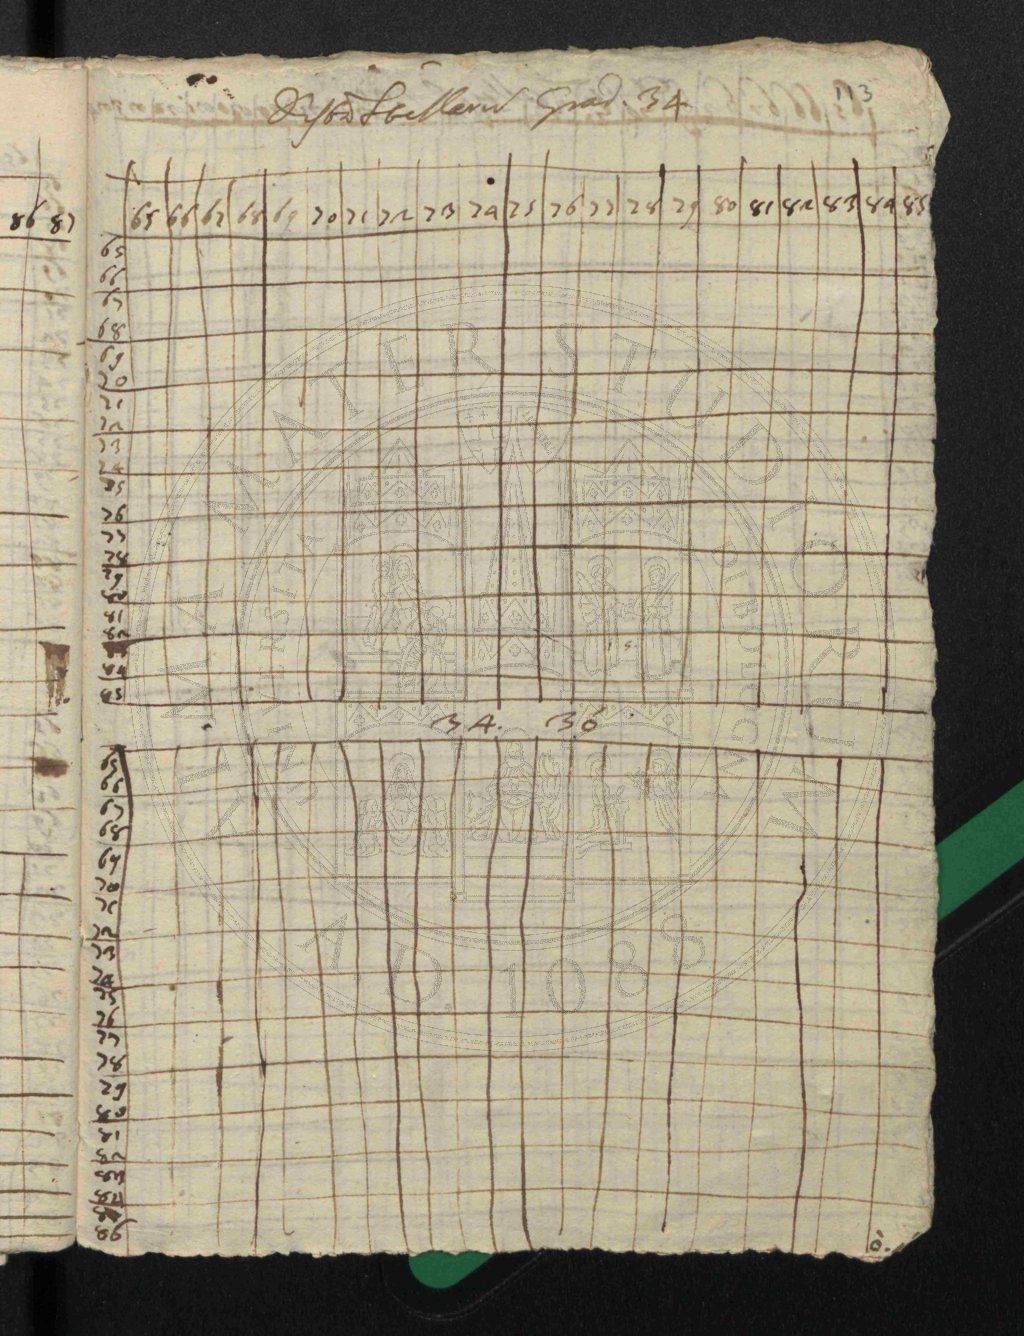 113
Grad. 34
86 87
65 66 67 68 69 70 71 72 73 74 75 76 77 78 79 80 81 82 83 84 85
65
66
67
68
69
70
71
72
73
74
75
76
77
78
79
81
84
85
34. 36
65
66
67
68
69
70
71
72
73
74
75
76
77
78
79
80
81
82
83
86
ALMA MATER STUDIORUM
A.D. 1088